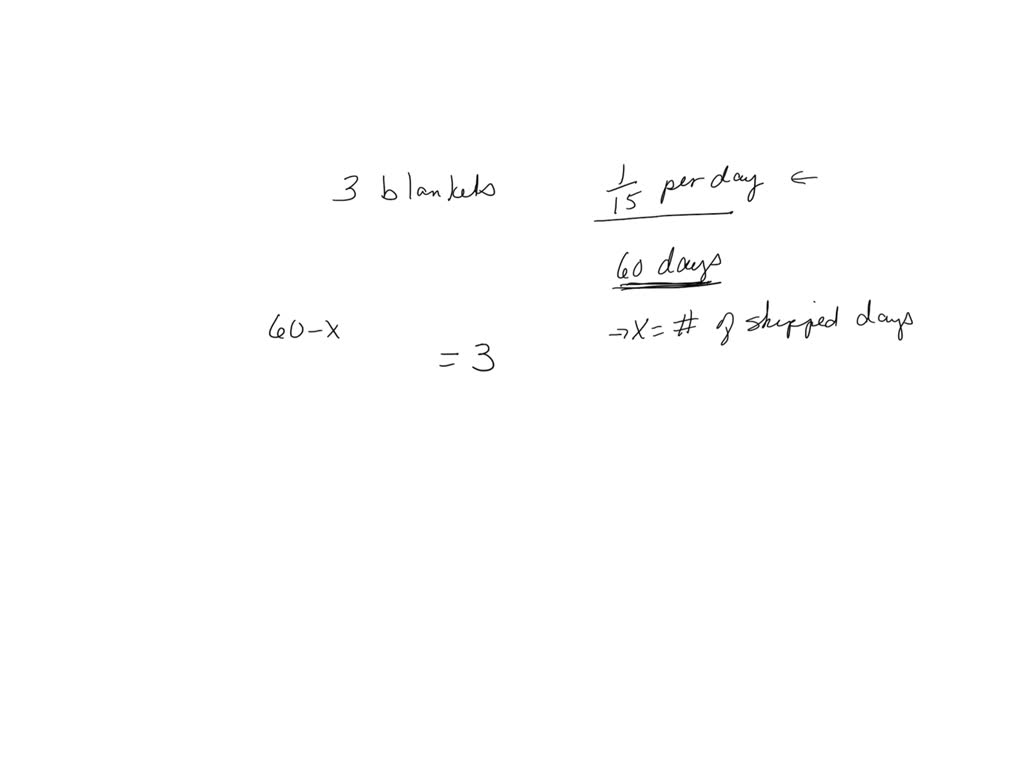 3 blankets
1/15 per day ←
60 days
→ X = # of skipped days
60-X
= 3